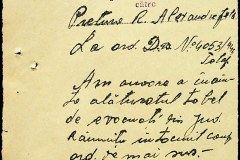 către
Pretura R. Alexandria
La ord. Dsa No 4053/
Am onoare a înain-
ta alăturatul tabel
de evacuați din jud.
întocmit conf.
ord. de mai sus